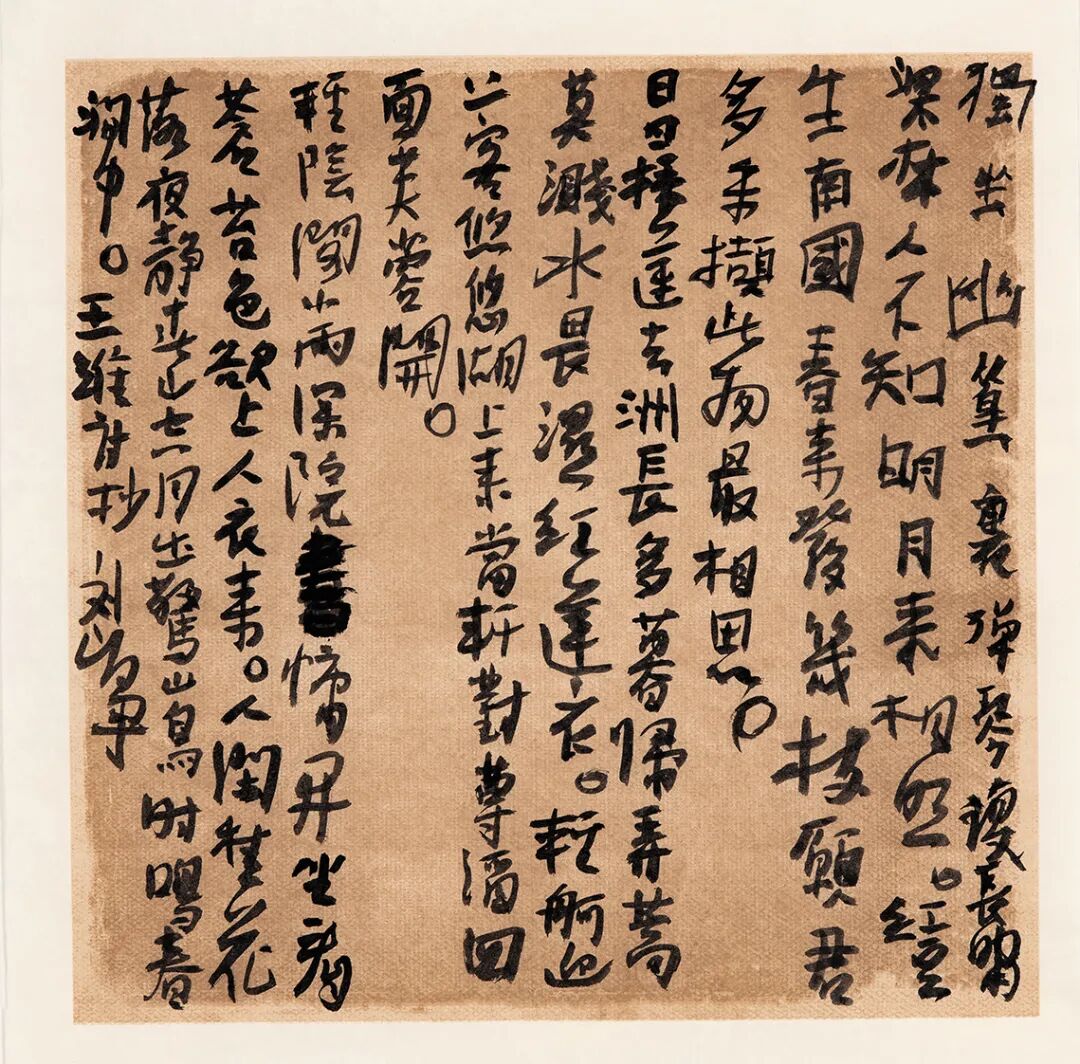 獨坐幽篁裏彈琴復長嘯
深林人不知明月来相照。紅豆
生南國春来發幾枝願君
多采擷此物最相思。
日日採蓮去洲長多暮歸弄篙
莫濺水畏濕紅蓮衣。輕舸迎
上客悠悠湖上来當軒對尊酒四
面芙蓉開。
輕陰閣小雨深院晝慵開坐看
蒼苔色欲上人衣来。人閒桂花
落夜靜春山空月出驚山鳥時鳴春
澗中。王維詩抄 刘